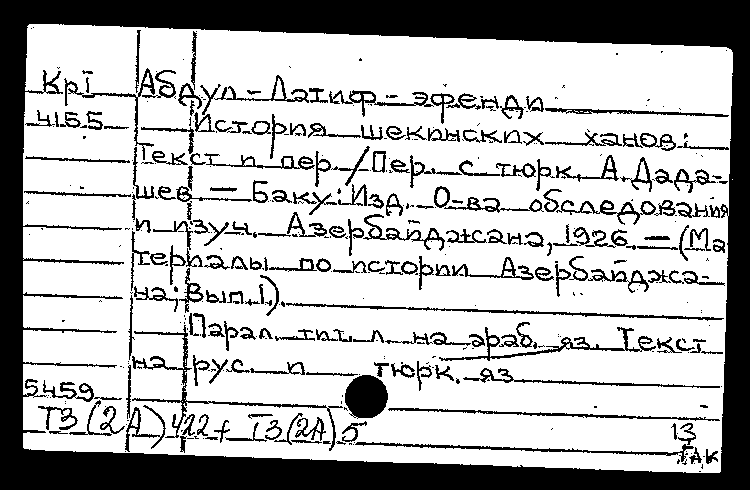 КрI Абдул-Латиф-эфенди
4155 История шекинских ханов:
Текст и пер. / Пер. с тюрк. А. Дада-
шев. — Баку: Изд. О-ва обследования
и изуч. Азербайджана, 1926. — (Ма
териалы по истории Азербайджа-
на; Вып. I).
Парал. тит. л. на араб. яз. Текст
на рус. и тюрк. яз
5459
Т3(2А)422+ Т3(2А)5
13
ГАК